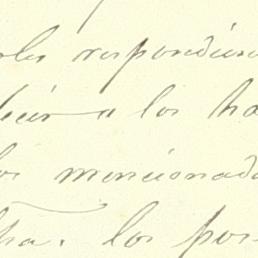 rles respondiero
decir a los ha
los mencionad
tra. los por